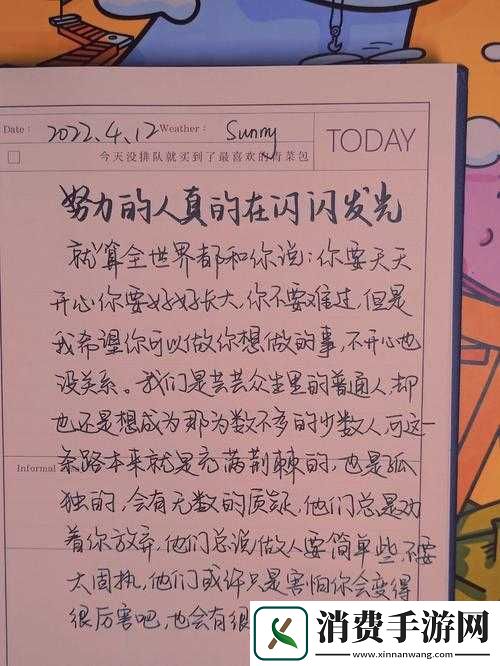 Date: 2022.4.12 Weather: Sunny
TODAY
今天没排队就买到了最喜欢的青菜包
努力的人真的在闪闪发光
就算全世界都和你说：你要天天
开心你要好好长大，你不要难过，但是
我希望你可以做你想做的事，不开心也
没关系。我们是芸芸众生里的普通人，却
也还是想成为那为数不多的少数人，可这一
条路本来就是充满荆棘的，也是孤
Informal
独的，会有无数的质疑，他们总是劝
着你放弃，他们总说做人要简单些，不要
太固执，他们或许只是害怕你会变得
很厉害吧，也会有很
消费手游网
www.xinnanwang.com